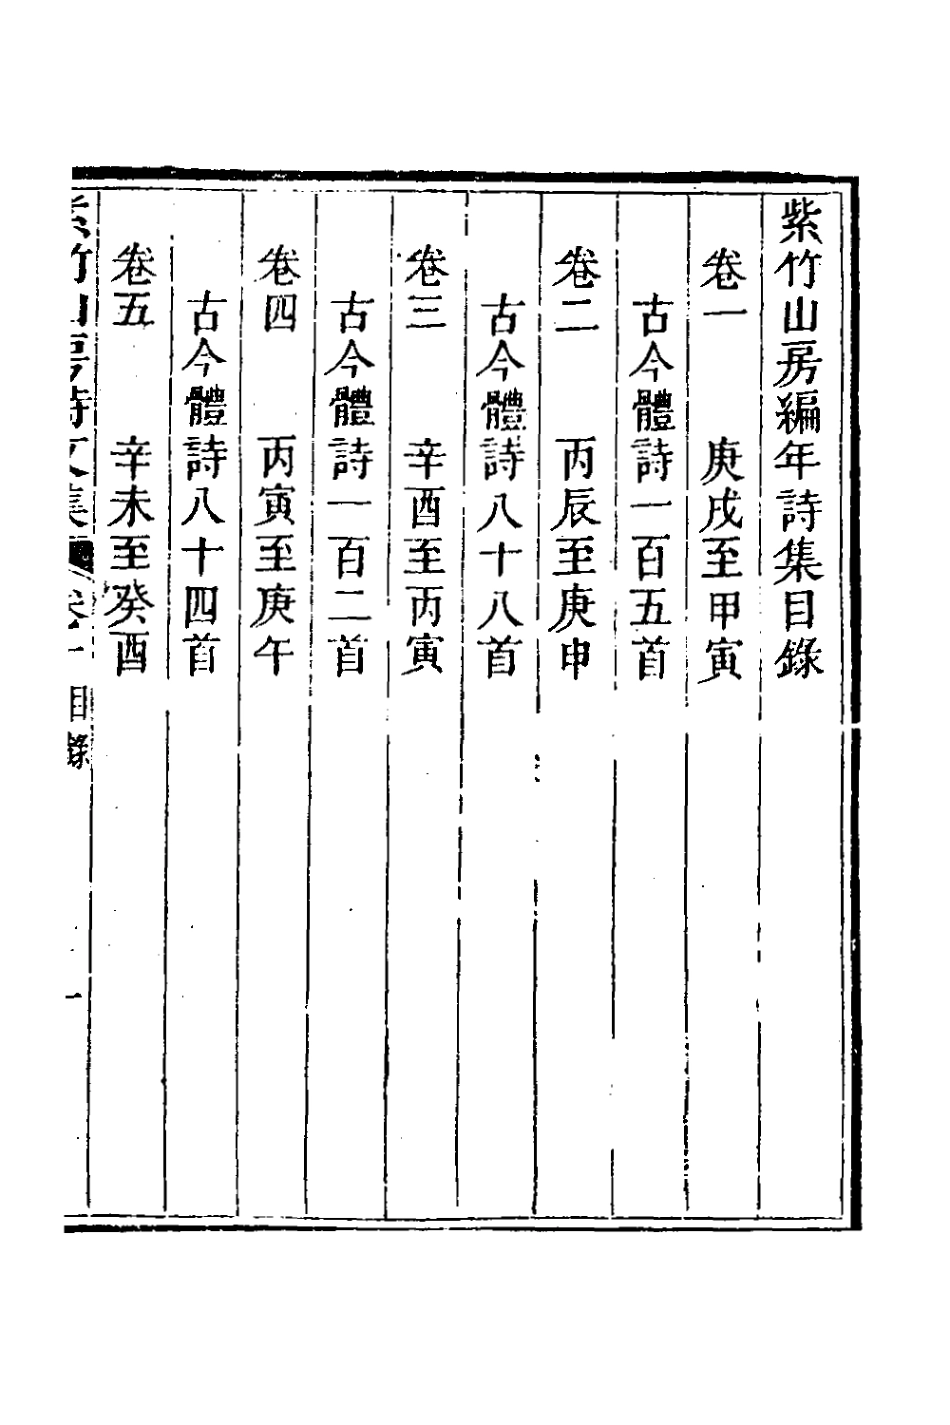 紫竹山房編年詩集目錄
卷一　庚戌至甲寅
古今體詩一百五首
卷二　丙辰至庚申
古今體詩八十八首
卷三　辛酉至丙寅
古今體詩一百二首
卷四　丙寅至庚午
古今體詩八十四首
卷五　辛未至癸酉
紫竹山房詩文集　卷一　目錄　一